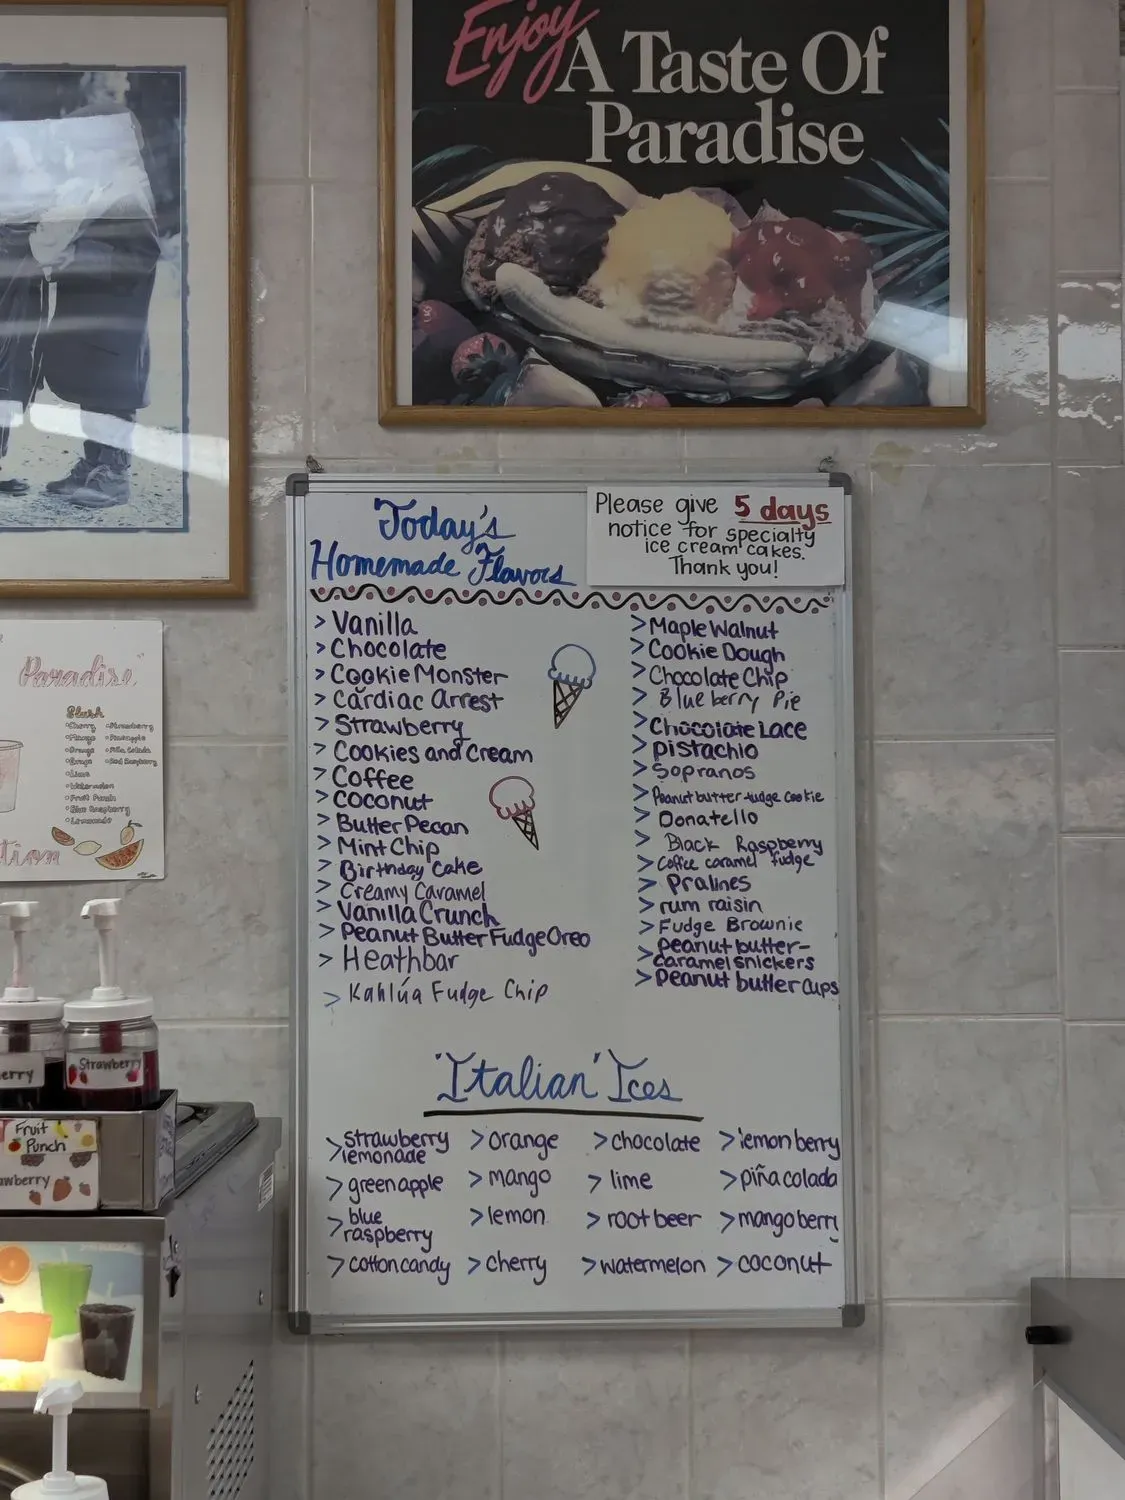 Enjoy
A Taste Of
Paradise
Today's
Homemade Flavors
Please give 5 days
notice for specialty
ice cream cakes.
Thank you!
> Vanilla
> Chocolate
> Cookie Monster
> Cardiac Arrest
> Strawberry
> Cookies and Cream
> Coffee
> Coconut
> Butter Pecan
> Mint Chip
> Birthday Cake
> Creamy Caramel
> Vanilla Crunch
> Peanut Butter Fudge Oreo
> Heathbar
> Kahlúa Fudge Chip
> Maple Walnut
> Cookie Dough
> Chocolate Chip
> Blueberry Pie
> Chocolate Lace
> pistachio
> Sopranos
> Peanut butter fudge cookie
> Donatello
> Black Raspberry
> Coffee caramel fudge
> Pralines
> rum raisin
> Fudge Brownie
> peanut butter-
caramel snickers
> Peanut butter cups
'Italian' Ices
> strawberry lemonade > orange > chocolate > lemonberry
> green apple > mango > lime > piña colada
> blue raspberry > lemon > root beer > mangoberry
> cotton candy > cherry > watermelon > coconut
Paradise"
Slush
Cherry Strawberry
Mango Pineapple
Orange Piña Colada
Grape Red Raspberry
Lime
Watermelon
Fruit Punch
Blue Raspberry
Lemonade
Strawberry
Fruit
Punch